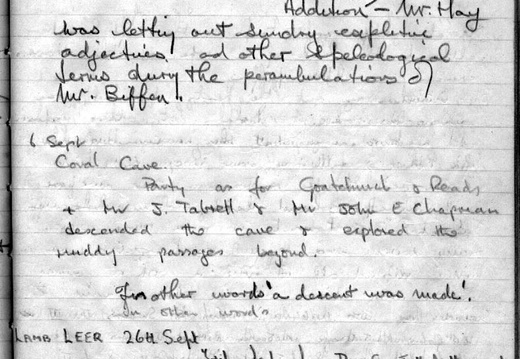 Addition — Mr. Hay
was letting out sundry expletive
adjectives and other speleological
terms during the perambulations of
Mr. Biffen".
6 Sept
Coral Cave.
Party as for Goatchurch & Reads
+ Mr J. Tabrett & Mr John E Chapman
descended the cave & explored the
muddy passages beyond.
In other words 'a descent was made'.
In other words
LAMB LEER 26th Sept